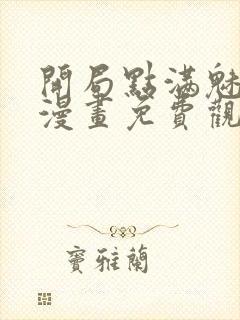 開局點滿魅
漫畫免費觀
竇雅蘭